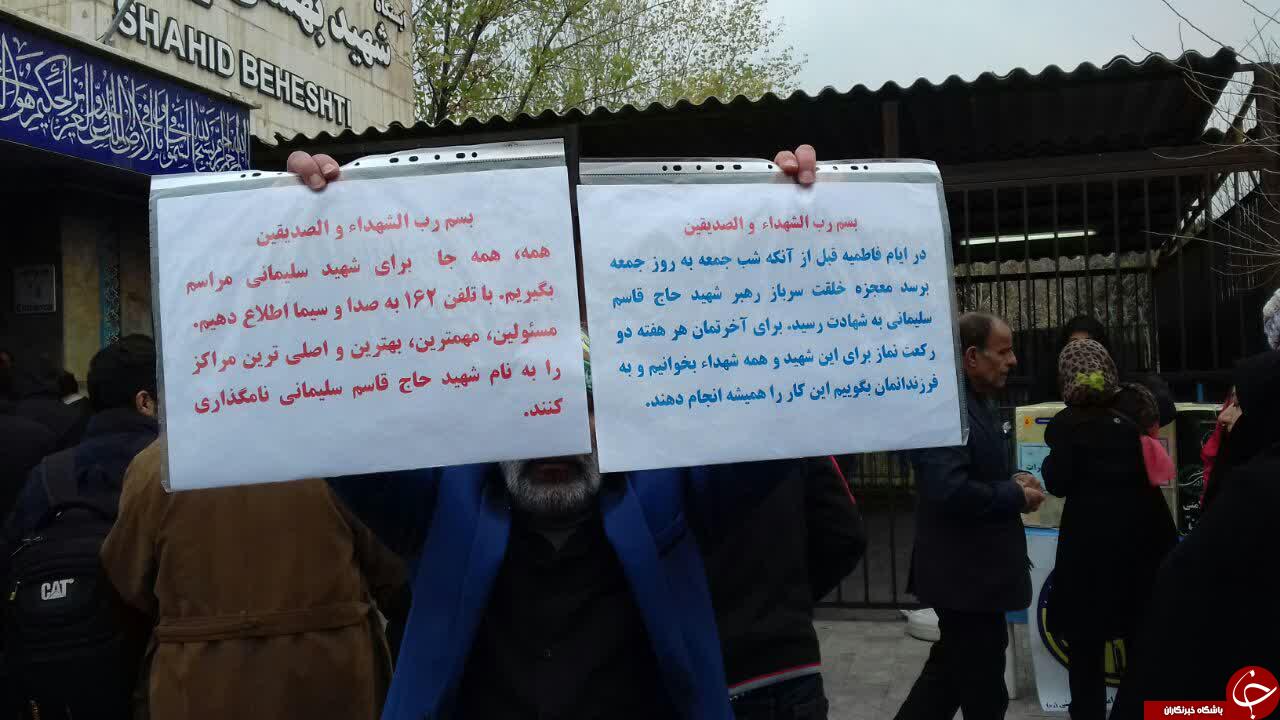 ایستگاه
SHAHID BEHESHTI
بسم رب الشهداء و الصدیقین
در ایام فاطمیه قبل از آنکه شب جمعه به روز جمعه
برسد معجزه خلقت سرباز رهبر شهید حاج قاسم
سلیمانی به شهادت رسید. برای آخرتمان هر هفته دو
رکعت نماز برای این شهید و همه شهداء بخوانیم و به
فرزندانمان بگوییم این کار را همیشه انجام دهند.
بسم رب الشهداء و الصدیقین
همه، همه جا برای شهید سلیمانی مراسم
بگیریم. با تلفن ۱۶۲ به صدا و سیما اطلاع دهیم.
مسئولین، مهمترین، بهترین و اصلی ترین مراکز
را به نام شهید حاج قاسم سلیمانی نامگذاری
کنند.
CAT
باشگاه خبرنگاران